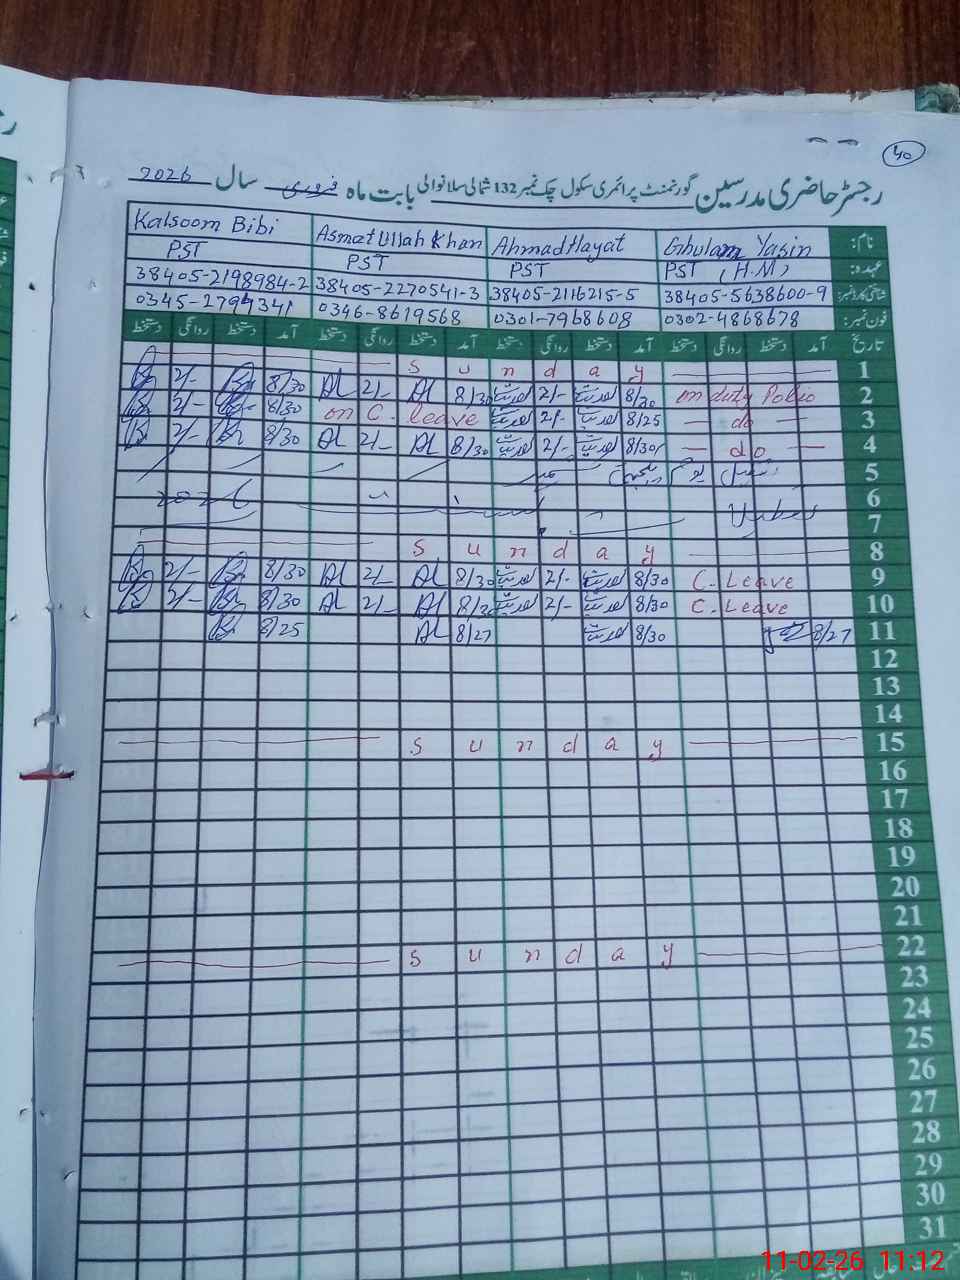 40
رجسٹر حاضری مدرسین گورنمنٹ پرائمری سکول چک نمبر 132 شمالی سلانوالی بابت ماہ فروری سال 2026
نام: Ghulam Yasin Ahmad Hayat Asmat Ullah Khan Kalsoom Bibi
عہدہ: PST (H.M) PST PST PST
شناختی کارڈ نمبر: 38405-5638600-9 38405-2116215-5 38405-2270541-3 38405-2198984-2
فون نمبر: 0302-4868678 0301-7968608 0346-8619568 0345-2794341
تاریخ آمد دستخط روانگی دستخط آمد دستخط روانگی دستخط آمد دستخط روانگی دستخط آمد دستخط روانگی دستخط
S u n d a y 1
2/- 8/30 Al 2/- Al 8/30 2/- 8/30 on duty Polio 2
2/- 8/30 on C. leave 2/- 8/25 do 3
2/- 8/30 Al 2/- Al 8/30 2/- 8/30 do 4
5
6
7
S u n d a y 8
2/- 8/30 Al 2/- Al 8/30 2/- 8/30 C. Leave 9
2/- 8/30 Al 2/- Al 8/30 2/- 8/30 C. Leave 10
8/25 Al 8/27 8/30 8/27 11
12
13
14
S u n d a y 15
16
17
18
19
20
21
S u n d a y 22
23
24
25
26
27
28
29
30
31
11-02-26 11:12